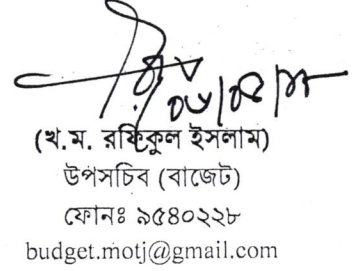 (খ.ম. রফিকুল ইসলাম)
উপসচিব (বাজেট)
ফোনঃ ৯৫৪০২২৮
budget.motj@gmail.com